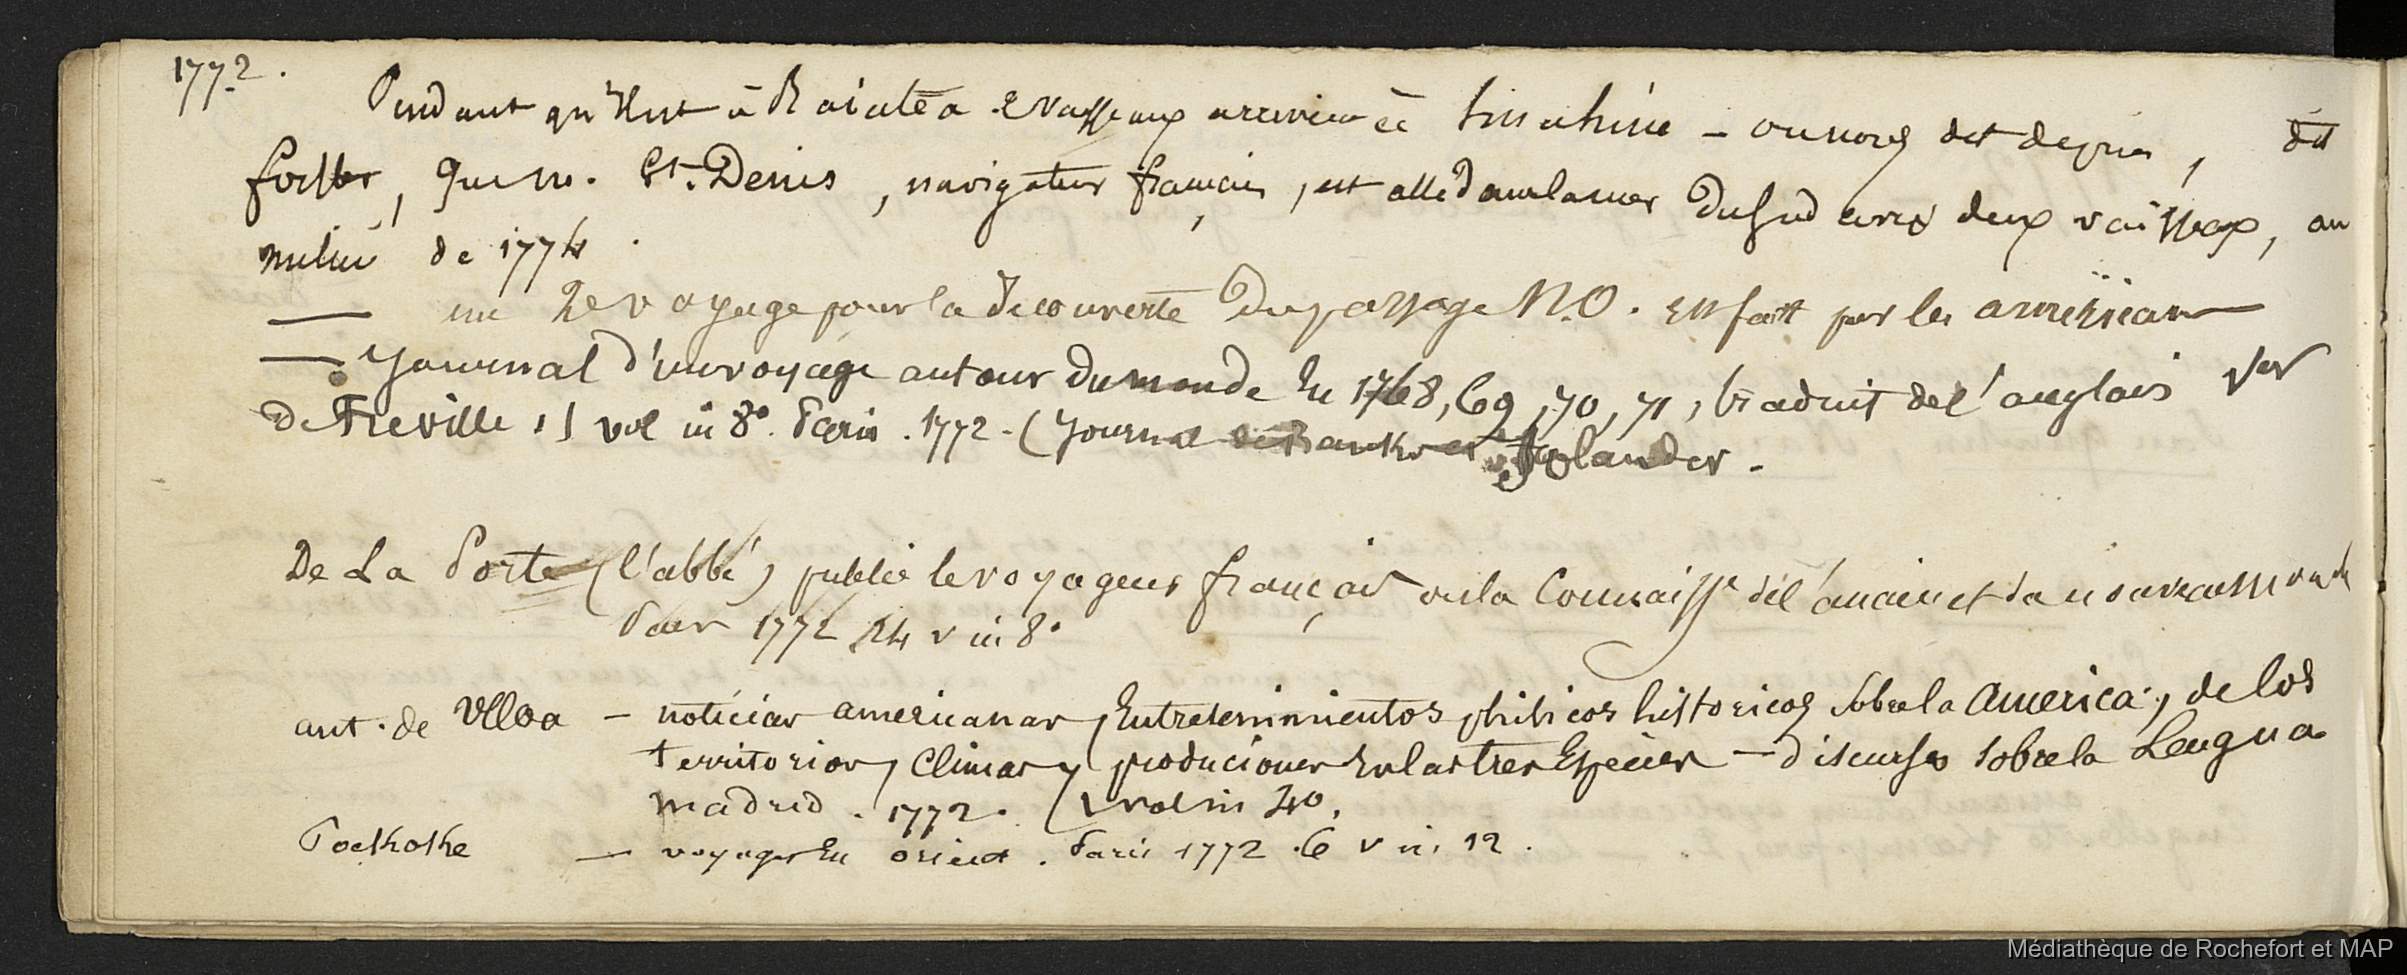 1772.
Pendant qu'il est à Raiatéa 2 vaisseaux arrivent à huahine – on nous dit depuis, dit
forster, que m. St. Denis, navigateur français, est allé dans la mer du sud avec deux vaisseaux, au
milieu de 1774.
— un 2e voyage pour la decouverte du passage N.O. est fait par les américains
— Journal d'un voyage autour du monde en 1768, 69, 70, 71, traduit de l'anglais par
De Freville, 1 vol in 8°. Paris. 1772. (Journal de Banks et Solander.
De La Porte (l'abbé) publie le voyageur français ou la Connaisse de l'ancien et du nouveau monde
Paris 1772 24 v in 8°
ant. de Ulloa – noticias americanas, Entretenimientos phisicos historicos sobre la America, de los
territorios, Climas y producciones en las tres Especies – discurso sobre la Lengua
madrid. 1772. 1 vol in 4°.
Pockoke — voyages en orient. Paris 1772. 6 v in 12.
Médiathèque de Rochefort et MAP